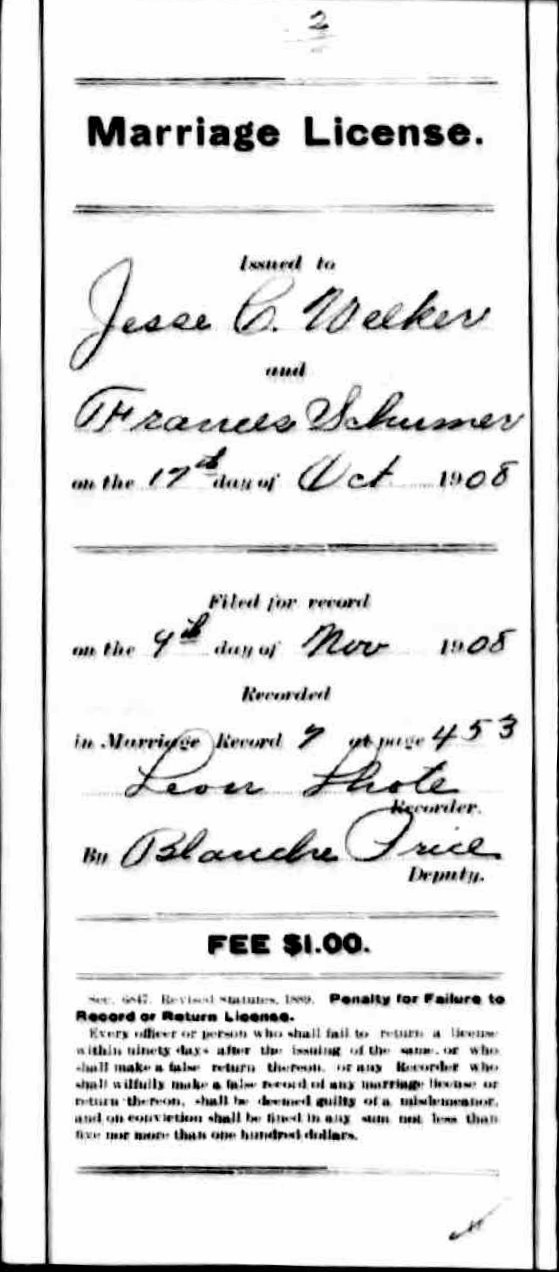 2
Marriage License.
Issued to
Jesse C. Welker
and
Frances Schumer
on the 17th day of Oct 1908
Filed for record
on the 9th day of Nov 1908
Recorded
in Marriage Record 7 at page 453
Leon Shote
Recorder.
By Blanche Price
Deputy.
FEE $1.00.
Sec. 6847. Revised Statutes, 1889. Penalty for Failure to
Record or Return License.
Every officer or person who shall fail to return a license
within ninety days after the issuing of the same, or who
shall make a false return thereon, or any Recorder who
shall wilfully make a false record of any marriage license or
return thereon, shall be deemed guilty of a misdemeanor,
and on conviction shall be fined in any sum not less than
five nor more than one hundred dollars.